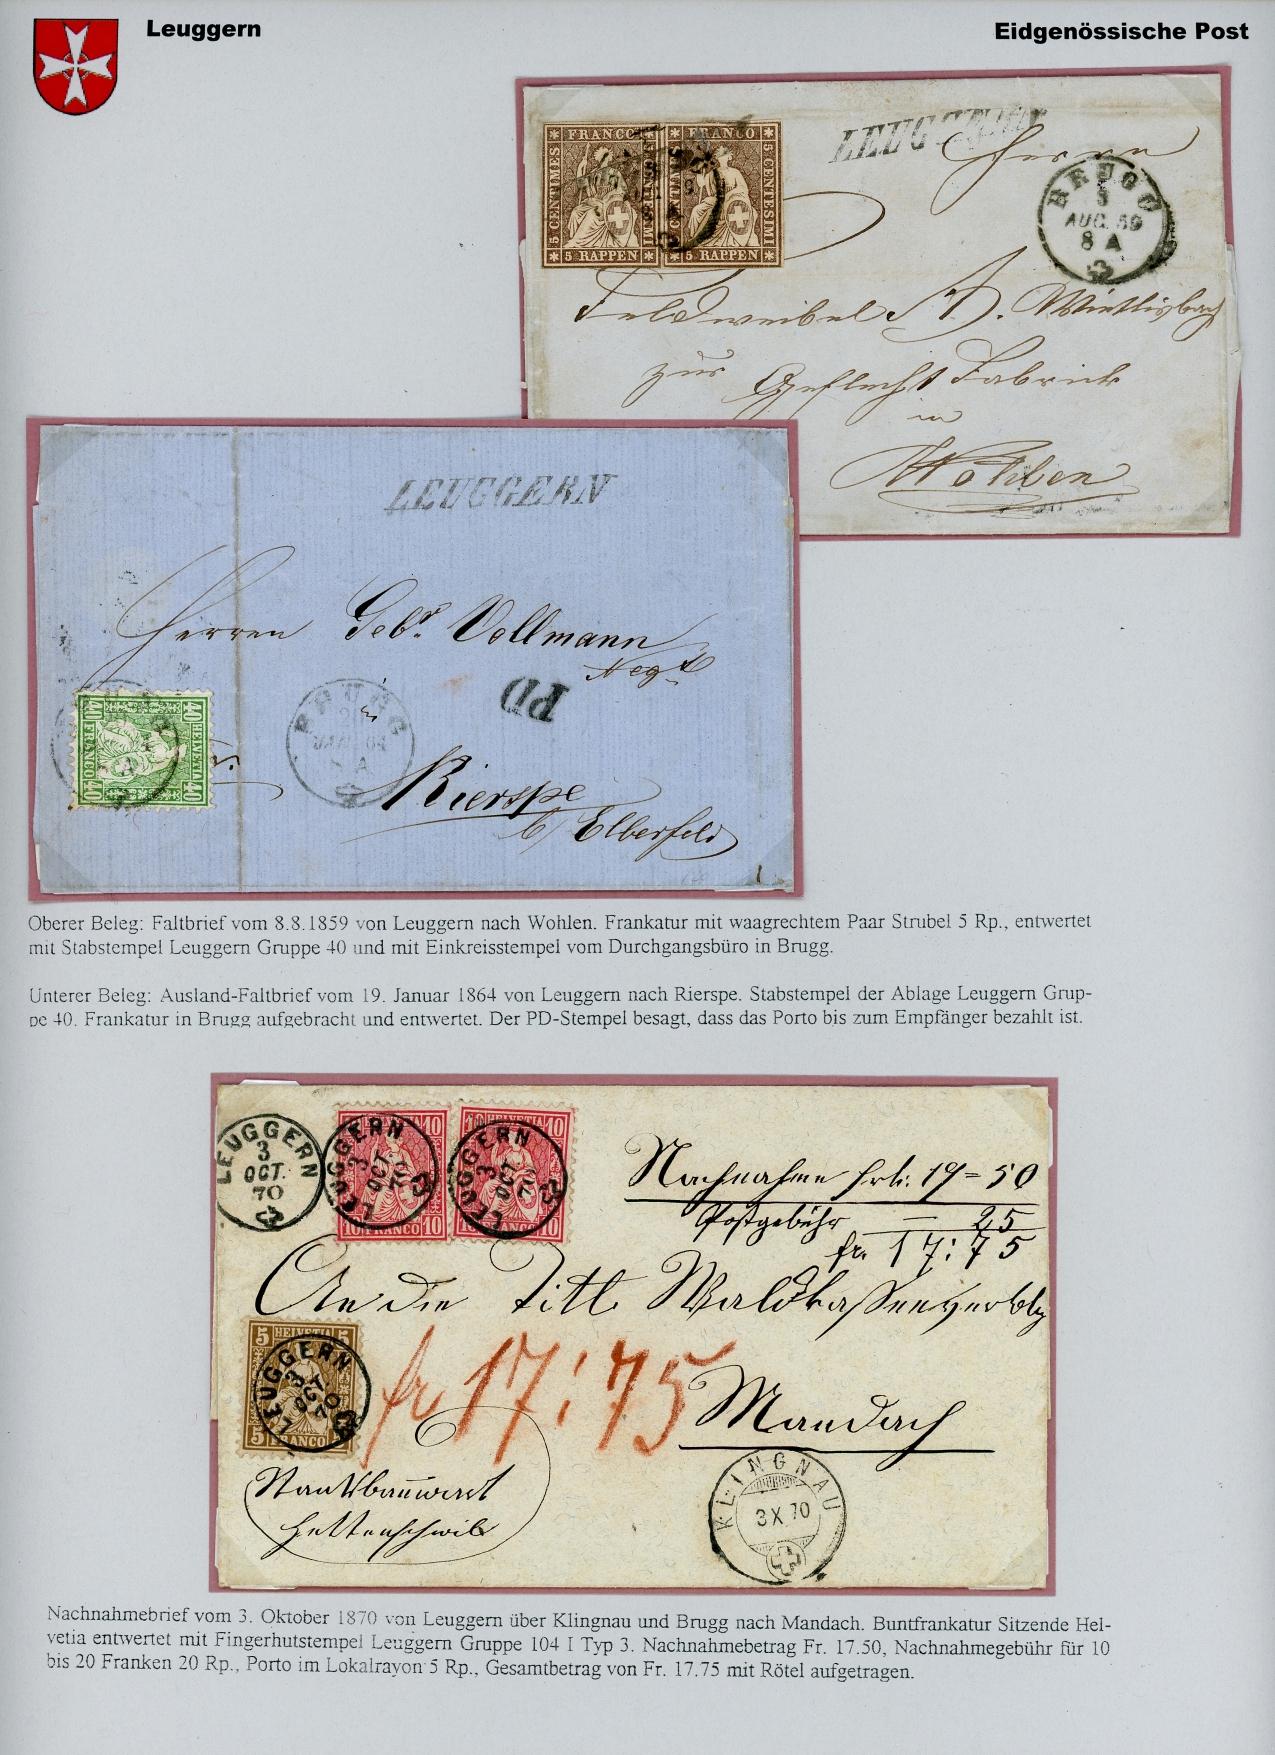 Leuggern
Eidgenössische Post
FRANCO FRANCO
5 CENTIMES 5 CENTESIMI
5 RAPPEN 5 RAPPEN
LEUGGERN
Herrn
BRUGG
8
AUG. 59
8 A
Feldweibel A. Wietlisbach
zur Geflecht Fabrick
in
Wohlen
LEUGGERN
Herren Gebr. Vollmann
Negt
PD
in
BRUGG
JAN. 64
A
40 HELVETIA 40
40 FRANCO 40
Rierspe
b/ Elberfeld
Oberer Beleg: Faltbrief vom 8.8.1859 von Leuggern nach Wohlen. Frankatur mit waagrechtem Paar Strubel 5 Rp., entwertet
mit Stabstempel Leuggern Gruppe 40 und mit Einkreisstempel vom Durchgangsbüro in Brugg.
Unterer Beleg: Ausland-Faltbrief vom 19. Januar 1864 von Leuggern nach Rierspe. Stabstempel der Ablage Leuggern Grup-
pe 40. Frankatur in Brugg aufgebracht und entwertet. Der PD-Stempel besagt, dass das Porto bis zum Empfänger bezahlt ist.
LEUGGERN
3
OCT.
70
LEUGGERN
3
OCT.
70
10 FRANCO 10
10 HELVETIA 10
LEUGGERN
3
OCT.
70
10 FRANCO 10
Nachnahme frk: 17=50
Postgebühr — 25
fr. 17:75
An die Titl. Waldkassenverwltg
5 HELVETIA 5
LEUGGERN
3
OCT.
70
5 FRANCO 5
fr 17:75
Mandach
Hettenschwil
KLINGNAU
3 X 70
Nachnahmebrief vom 3. Oktober 1870 von Leuggern über Klingnau und Brugg nach Mandach. Buntfrankatur Sitzende Hel-
vetia entwertet mit Fingerhutstempel Leuggern Gruppe 104 I Typ 3. Nachnahmebetrag Fr. 17.50, Nachnahmegebühr für 10
bis 20 Franken 20 Rp., Porto im Lokalrayon 5 Rp., Gesamtbetrag von Fr. 17.75 mit Rötel aufgetragen.